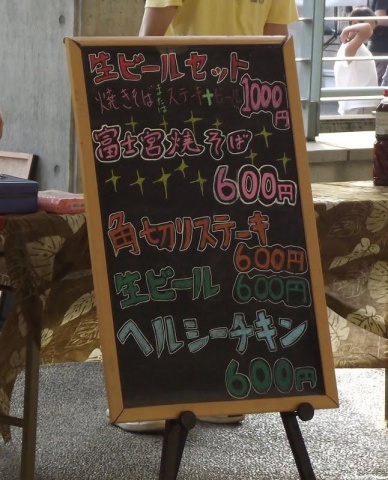 生ビールセット
焼きそばまたはステーキ+ビール 1000円
富士宮焼そば
600円
角切りステーキ
600円
生ビール 600円
ヘルシーチキン
600円